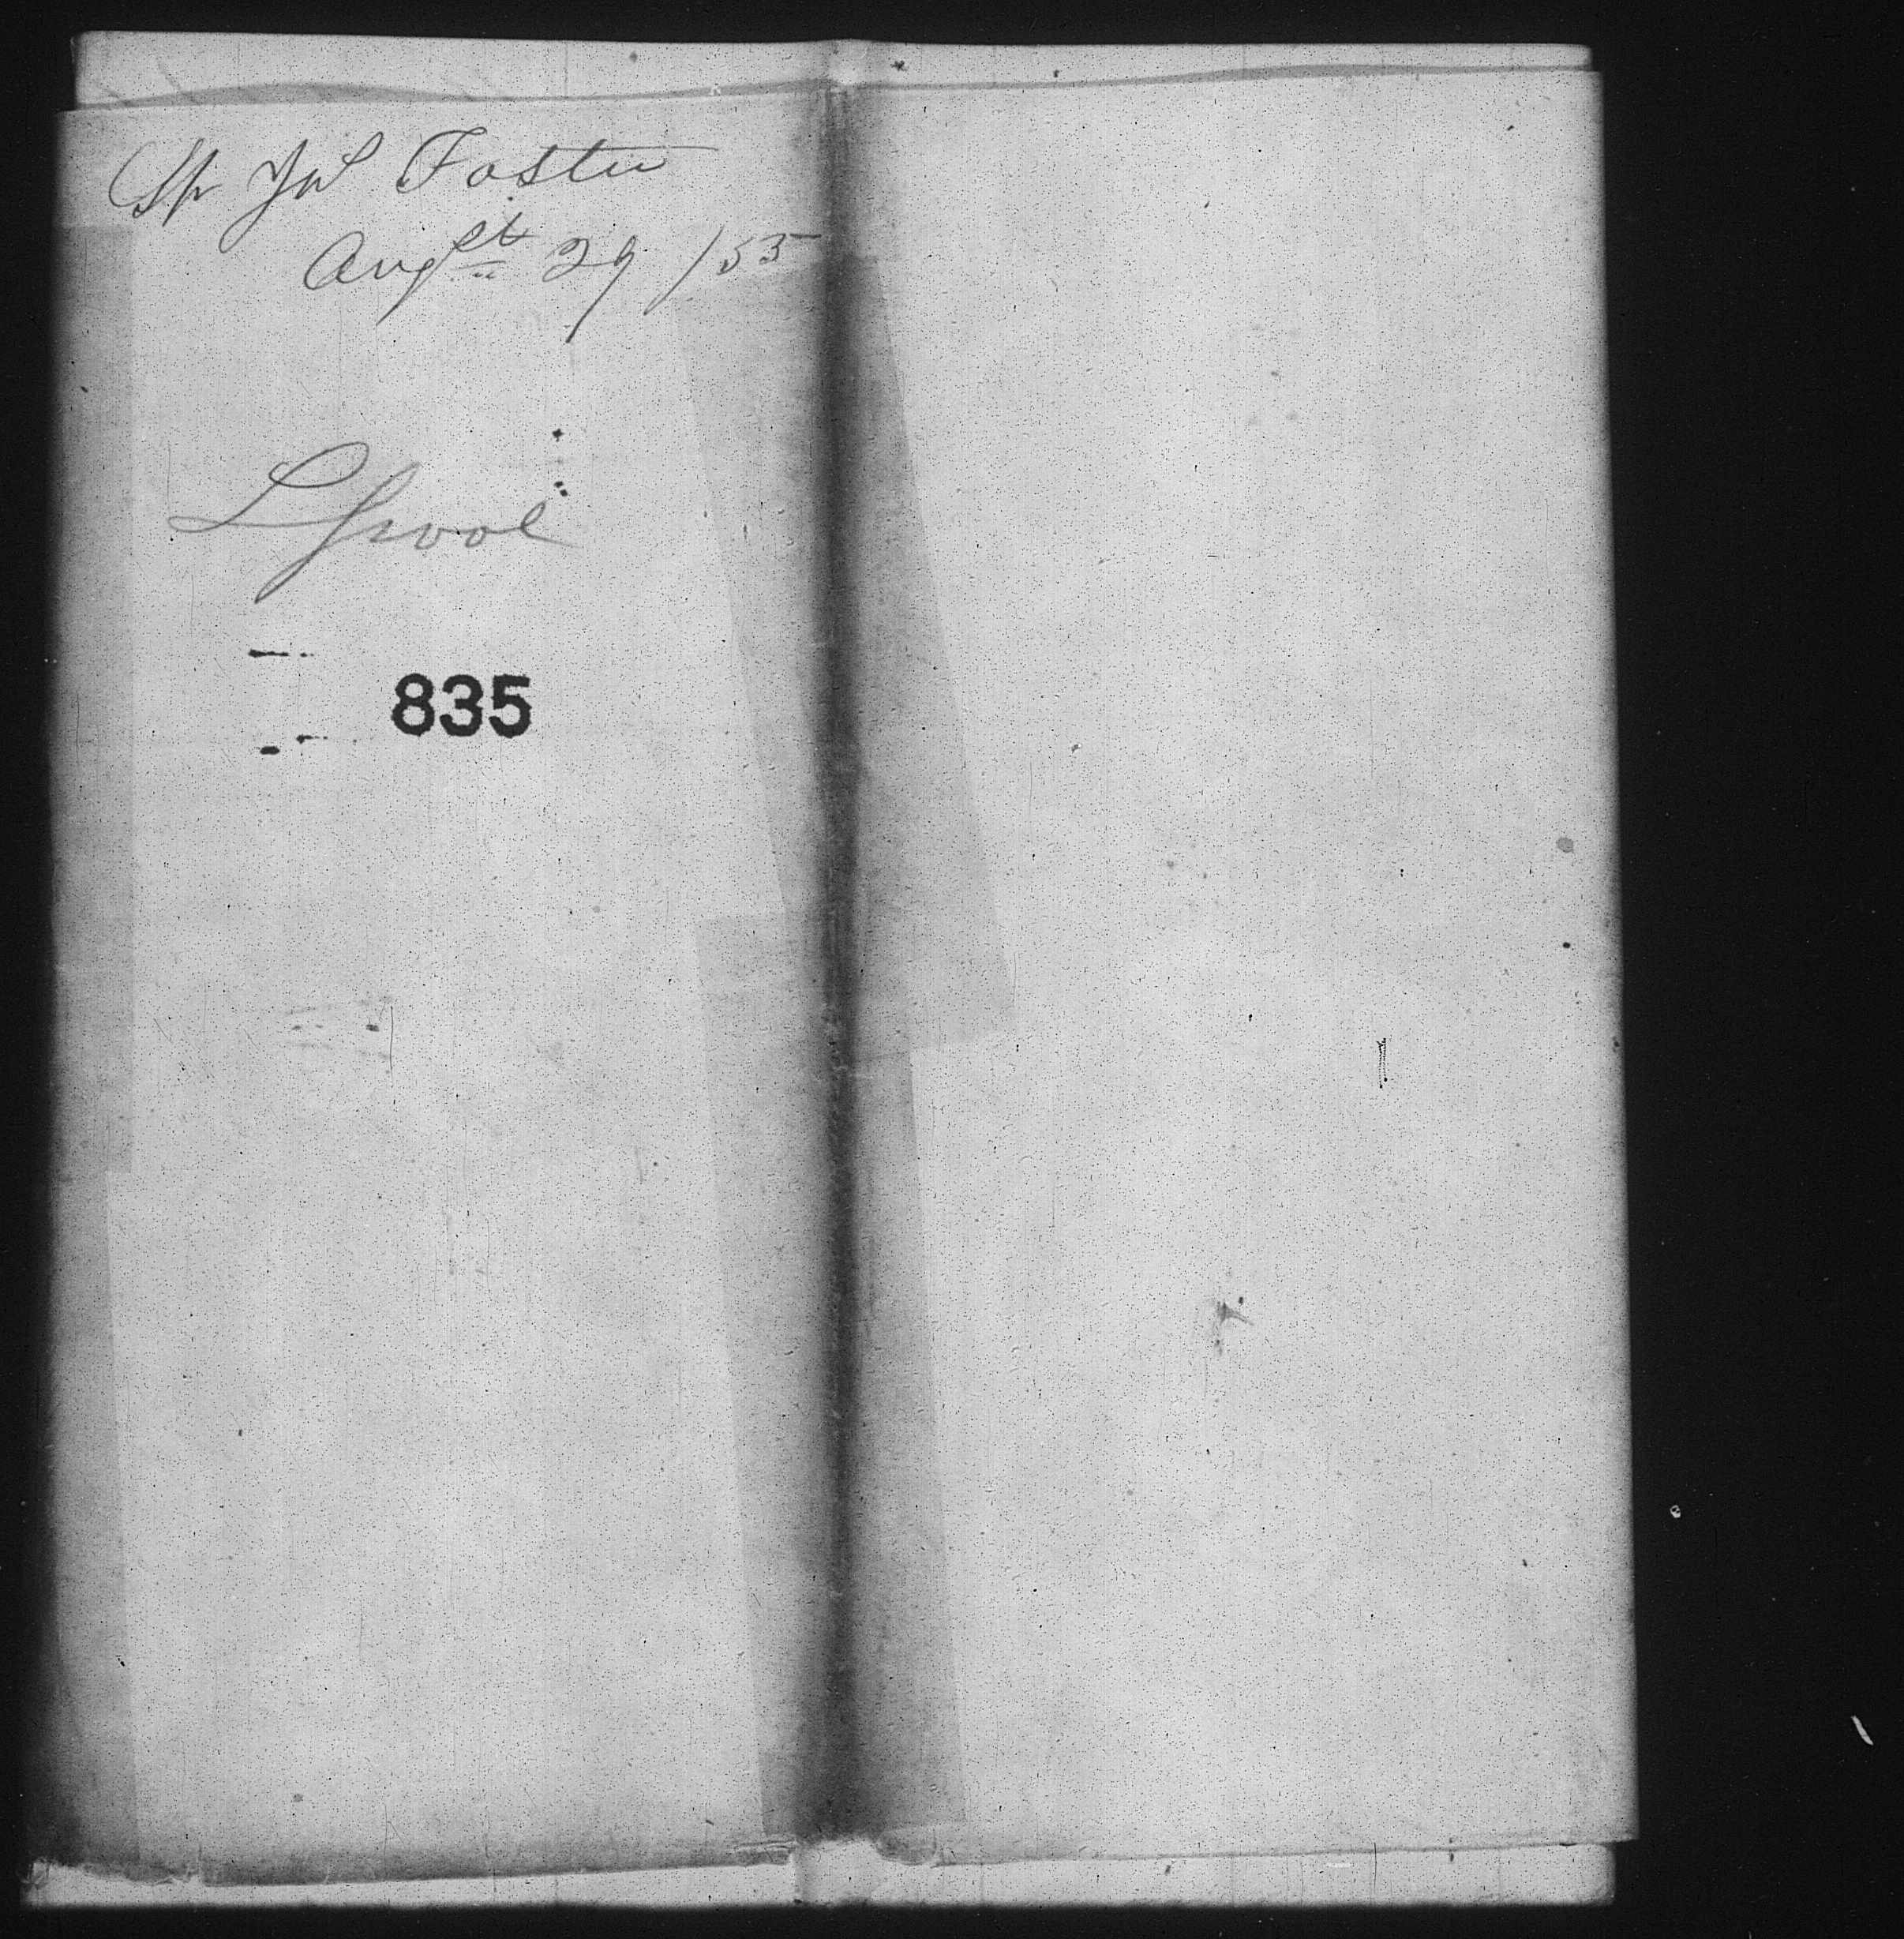 Sp Jno Foster
Augst 29 /55
Lpool
835